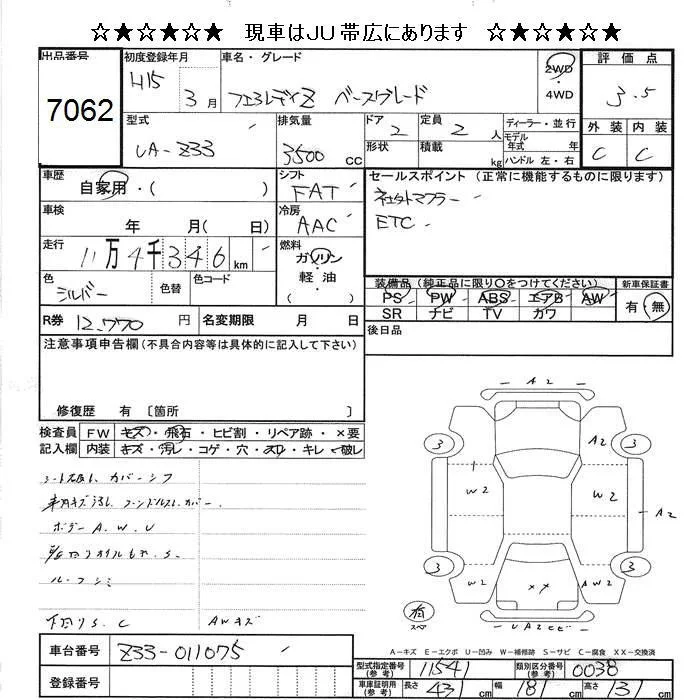 ☆★☆★☆★☆ 現車はJU帯広にあります ☆★☆★☆★☆
出品番号 7062
初度登録年月 H15 3月
車名・グレード フェアレディZ ベースグレード
2WD・4WD
評価点 3.5
型式 UA-Z33
排気量 3500 cc
ドア 2
形状
定員 2 人
積載 kg
ディーラー・並行
モデル年式 年
ハンドル 左・右
外装 C
内装 C
車歴 自家用・( )
シフト FAT
セールスポイント(正常に機能するものに限ります)
社外マフラー
ETC
車検 年 月( 日)
冷房 AAC
走行 11万4千346km
燃料 ガソリン・軽油 ( )
色 シルバー
色替
色コード
装備品(純正品に限り○をつけてください)
PS PW ABS エアB AW
SR ナビ TV カワ
新車保証書 有・無
R券 12,770 円
名変期限 月 日
後日品
注意事項申告欄(不具合内容等は具体的に記入して下さい)
修復歴 有 〔箇所 〕
検査員記入欄
FW キズ・飛石・ヒビ割・リペア跡・×要
内装 キズ・汚れ・コゲ・穴・スレ・キレ・破レ
ボデー A.W.U
下廻りS.C
AWキズ
A2
3 3
A2
W2 W2
A2
3 3
W2 ×× AW2
UA2ヒビ
A-キズ E-エクボ U-凹み W-補修跡 S-サビ C-腐食 XX-交換済
車台番号 Z33-011075
登録番号
型式指定番号(参考) 11541
類別区分番号(参考) 0038
車庫証明用(参考) 長さ 431 cm 幅 181 cm 高さ 131 cm